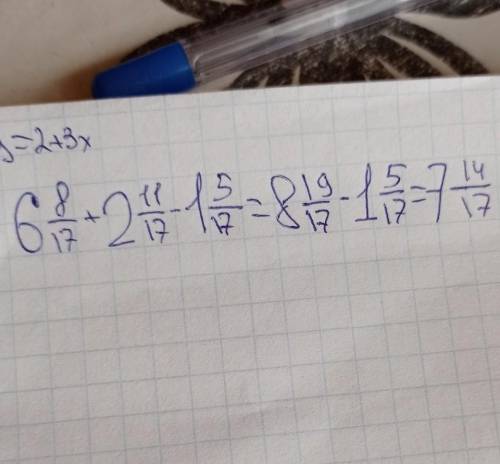 y=2+3x
6 8/17 + 2 11/17 - 1 5/17 = 8 19/17 - 1 5/17 = 7 14/17